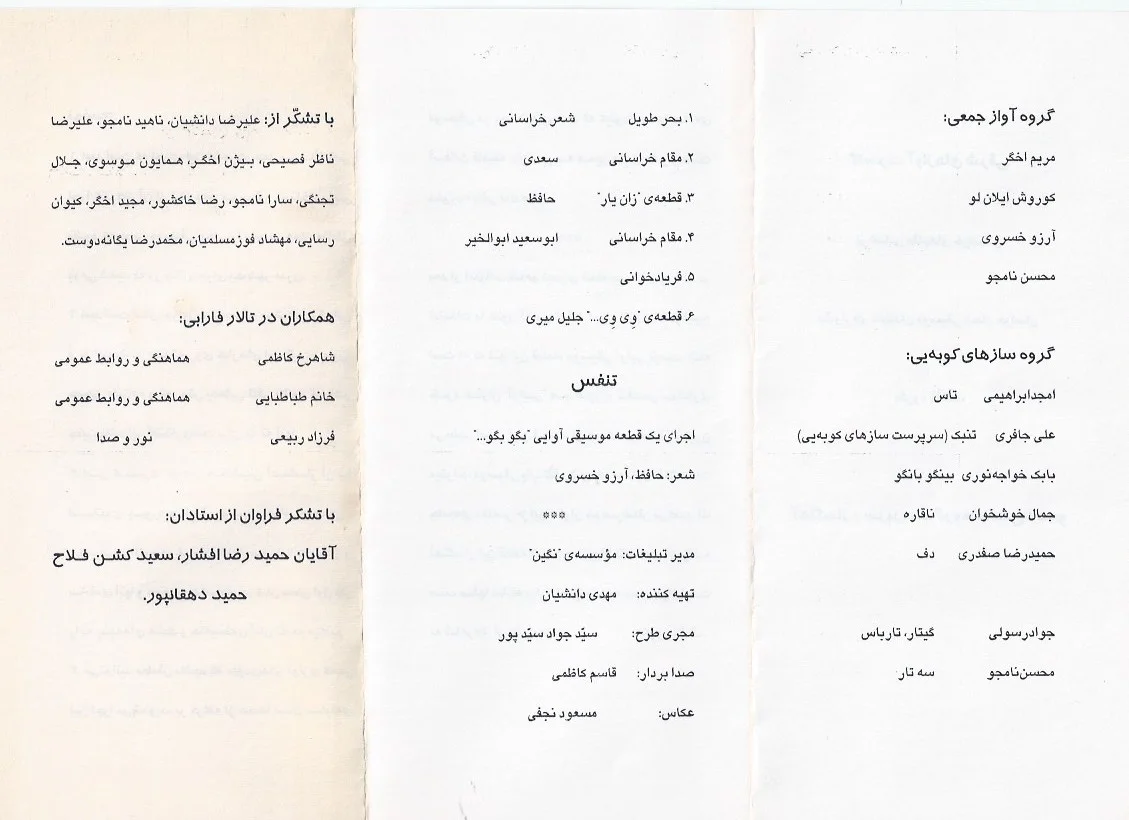 گروه آواز جمعی:
مریم اخگر
کوروش ایلان لو
آرزو خسروی
محسن نامجو
گروه سازهای کوبه‌یی:
امجدابراهیمی تاس
علی جافری تنبک (سرپرست سازهای کوبه‌یی)
بابک خواجه‌نوری بینگو بانگو
جمال خوشخوان ناقاره
حمیدرضا صفدری دف
جوادرسولی گیتار، تارباس
محسن‌نامجو سه تار
۱. بحر طویل شعر خراسانی
۲. مقام خراسانی سعدی
۳. قطعه‌ی "زان یار" حافظ
۴. مقام خراسانی ابوسعید ابوالخیر
۵. فریادخوانی
۶. قطعه‌ی "وِی وِی..." جلیل میری
تنفس
اجرای یک قطعه موسیقی آوایی "بگو بگو..."
شعر: حافظ، آرزو خسروی
***
مدیر تبلیغات: مؤسسه‌ی "نگین"
تهیه کننده: مهدی دانشیان
مجری طرح: سیّد جواد سیّد پور
صدا بردار: قاسم کاظمی
عکاس: مسعود نجفی
با تشکّر از: علیرضا دانشیان، ناهید نامجو، علیرضا
ناظر فصیحی، بیژن اخگر، همایون موسوی، جلال
تجنگی، سارا نامجو، رضا خاکشور، مجید اخگر، کیوان
رسایی، مهشاد فوزمسلمیان، محّمدرضا یگانه‌دوست.
همکاران در تالار فارابی:
شاهرخ کاظمی هماهنگی و روابط عمومی
خانم طباطبایی هماهنگی و روابط عمومی
فرزاد ربیعی نور و صدا
با تشکر فراوان از استادان:
آقایان حمید رضا افشار، سعید کشن فلاح
حمید دهقانپور.